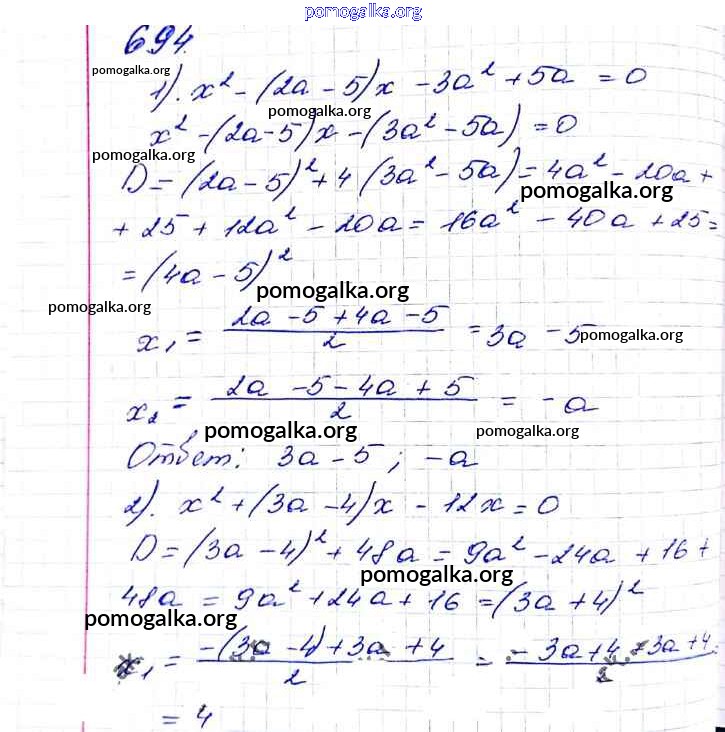 pomogalka.org
694.
pomogalka.org
1). x² - (2a - 5)x - 3a² + 5a = 0
pomogalka.org
x² - (2a - 5)x - (3a² - 5a) = 0
pomogalka.org
D = (2a - 5)² + 4 (3a² - 5a) = 4a² - 20a +
pomogalka.org
+ 25 + 12a² - 20a = 16a² - 40a + 25 =
= (4a - 5)²
pomogalka.org
pomogalka.org
x₁ = (2a - 5 + 4a - 5)/2 = 3a - 5
pomogalka.org
x₂ = (2a - 5 - 4a + 5)/2 = -a
pomogalka.org
pomogalka.org
Ответ: 3a - 5 ; -a
2). x² + (3a - 4)x - 12x = 0
D = (3a - 4)² + 48a = 9a² - 24a + 16 +
pomogalka.org
48a = 9a² + 24a + 16 = (3a + 4)²
pomogalka.org
x₁ = (-(3a - 4) + 3a + 4)/2 = (-3a + 4 + 3a + 4)/2
= 4